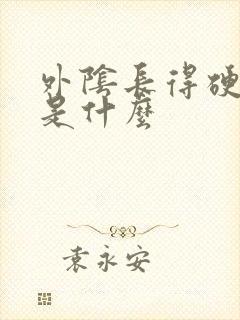 外陰長得硬
是什麼
袁永安